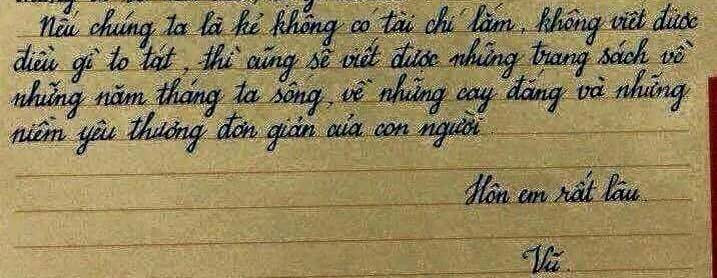 Nếu chúng ta là kẻ không có tài chí lắm, không viết được
điều gì to tát, thì cũng sẽ viết được những trang sách về
những năm tháng ta sống, về những cay đắng và những
niềm yêu thương đơn giản của con người
Hôn em rất lâu.
Vũ.